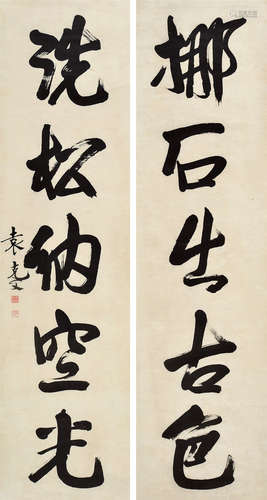 挪石生古色
洗松納空光
袁克文